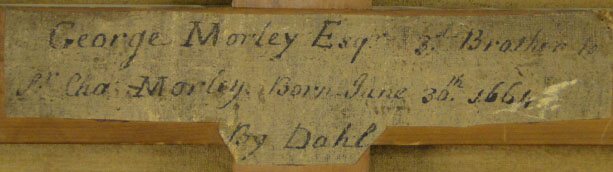 George Morley Esqr 3d Brother to
Sr Cha: Morley. Born June 30th. 1664
By Dahl